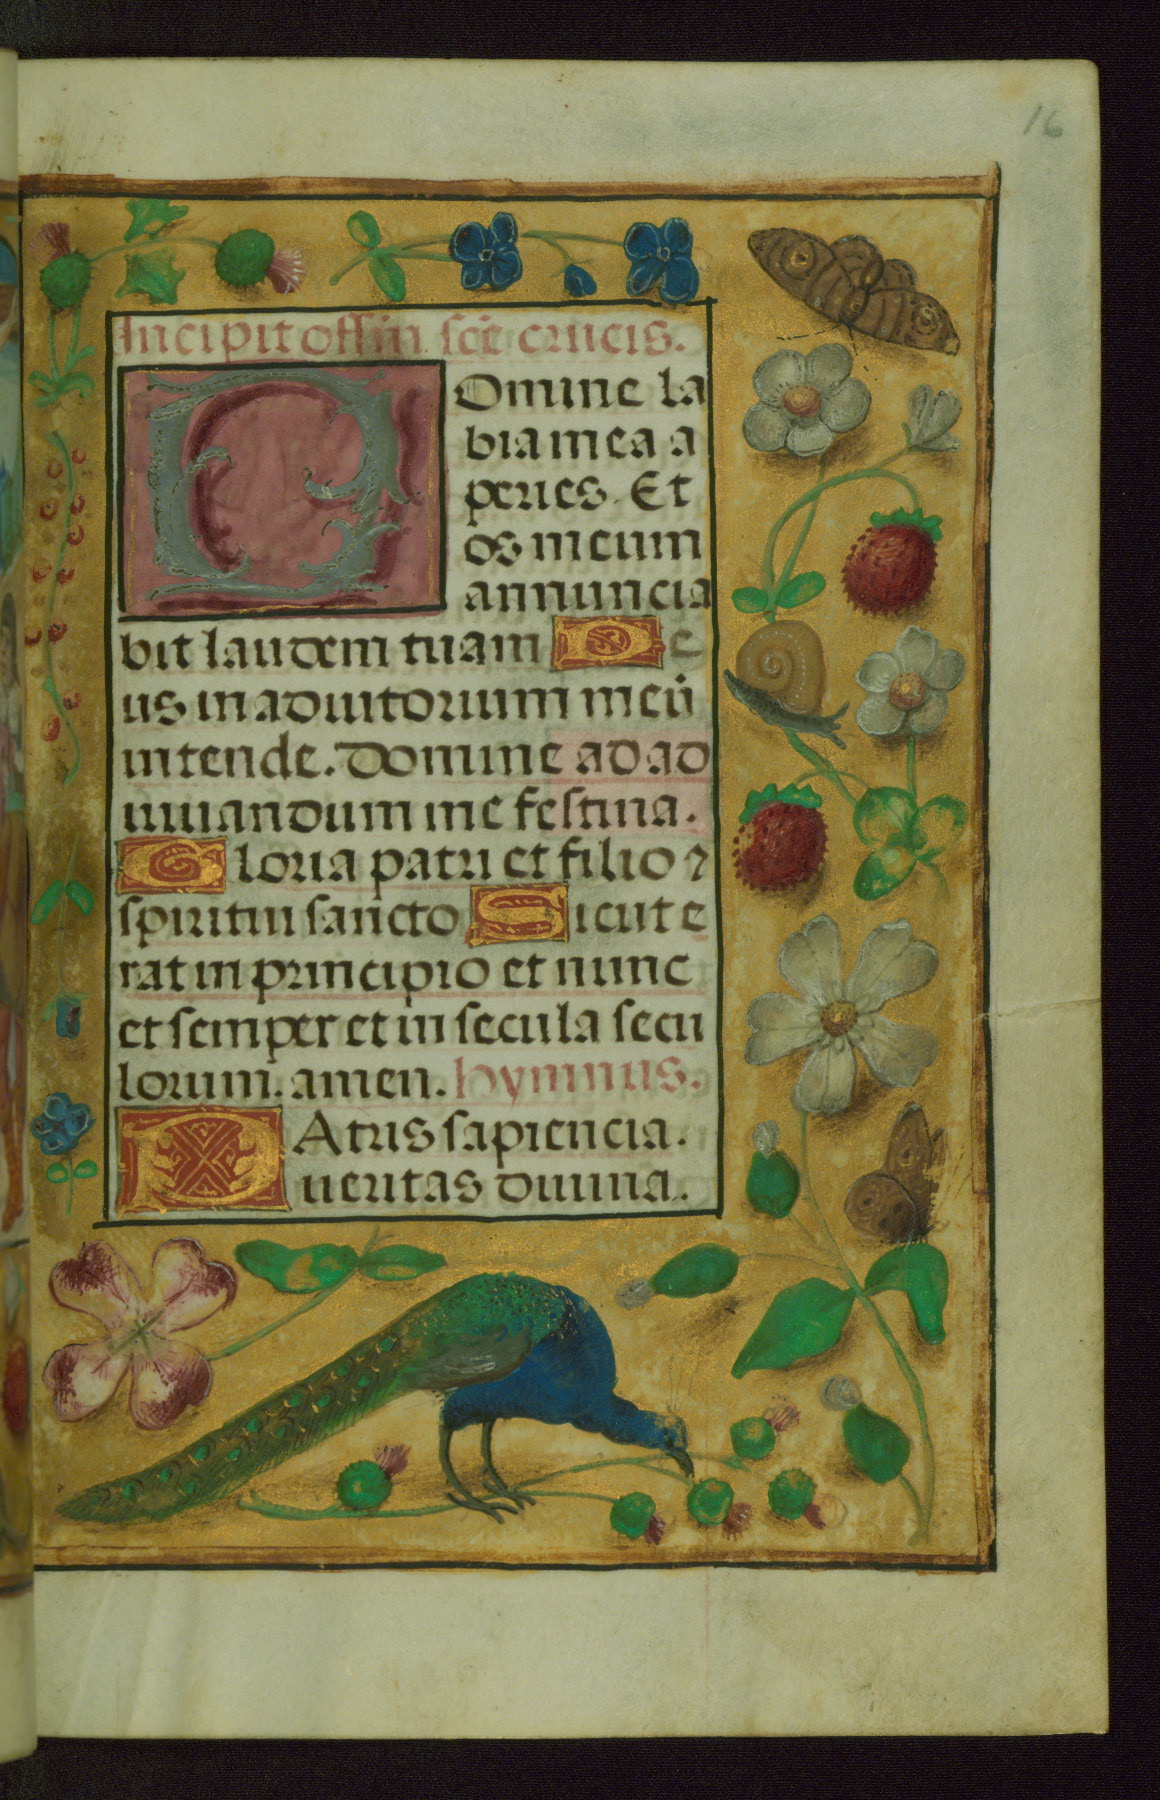 16
Incipit offm̄ sc̄e crucis.
Domine la
bia mea a
peries. Et
os meum
annuncia
bit laudem tuam De
us in adiutorium meū
intende. Domine ad ad
iuuandum me festina.
Gloria patri et filio ⁊
spiritui sancto Sicut e
rat in principio et nunc
et semper et in secula secu
lorum. amen. hymnus.
PAtris sapiencia.
ueritas diuina.